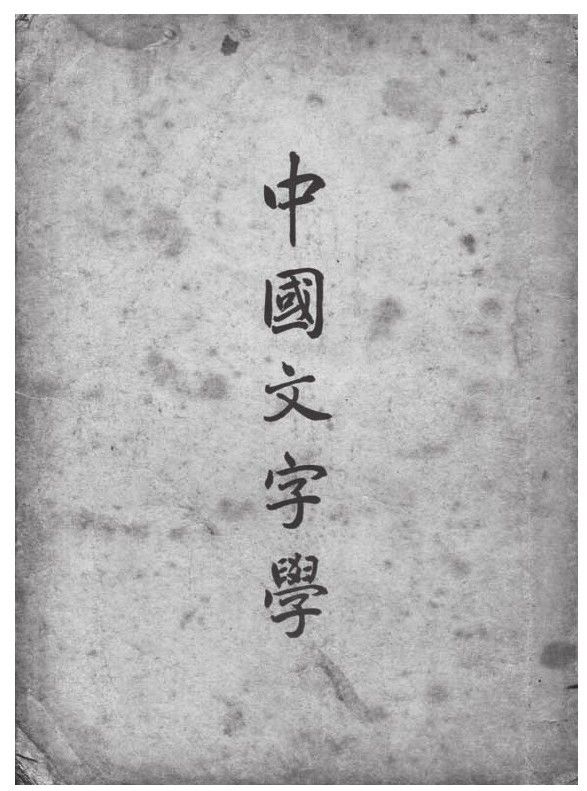 中國文字學